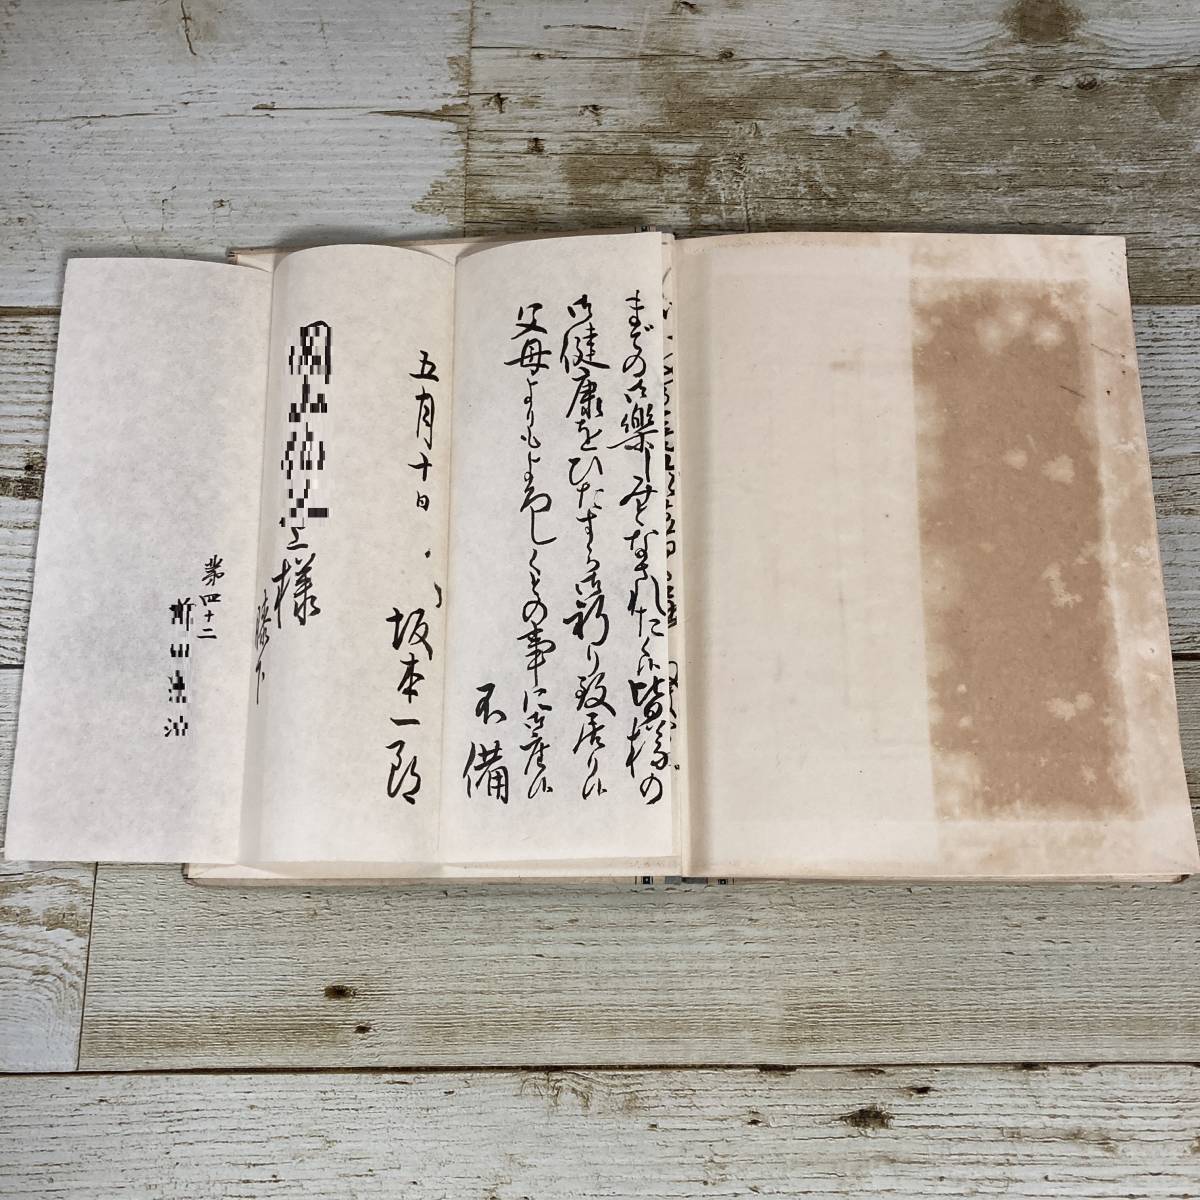 までの御楽しみとなされたく候皆様の
御健康をひたすら御祈り致居り候
父母よりもよろしくとの事に御座候
不備
五月十日
坂本一郎
様
膝下
第四十二